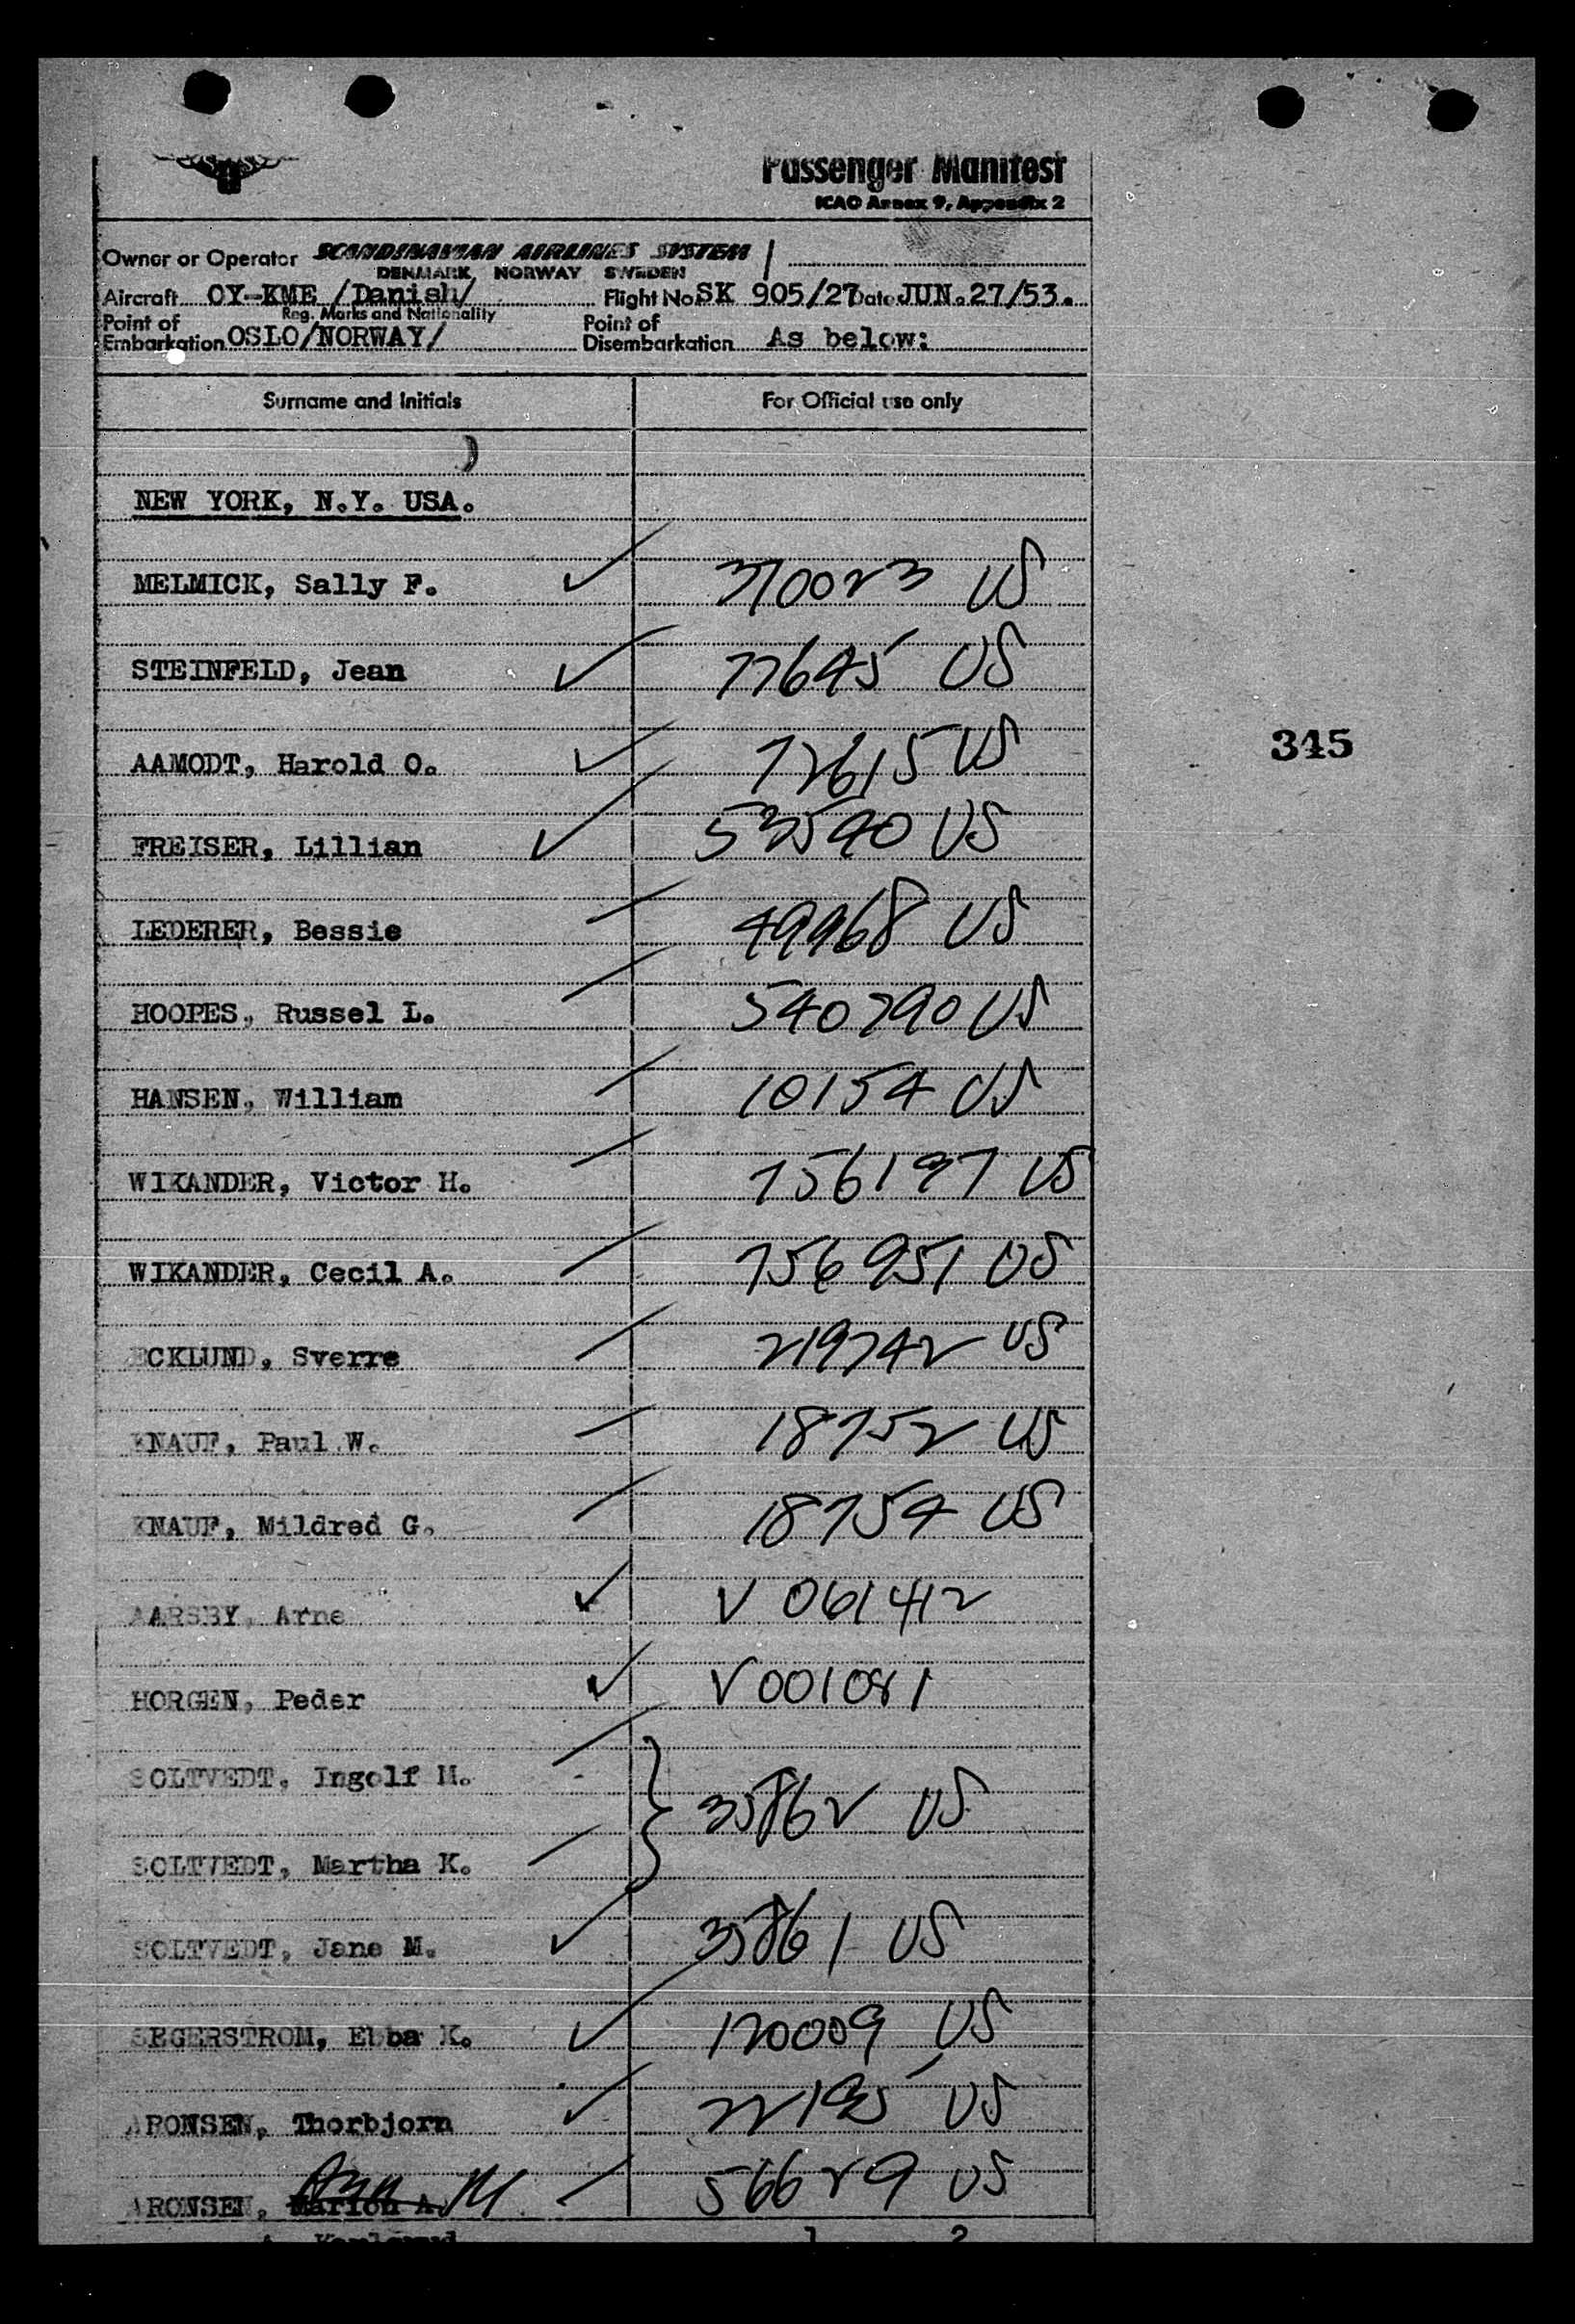 Passenger Manifest
ICAO Annex 9, Appendix 2
Owner or Operator SCANDINAVIAN AIRLINES SYSTEM
DENMARK, NORWAY SWEDEN
Aircraft OY-KME /Danish/ Flight No. SK 905/27 Date JUN. 27/53.
Reg. Marks and Nationality
Point of Embarkation OSLO/NORWAY/ Point of Disembarkation As below:
Surname and Initials For Official use only
NEW YORK, N.Y. USA.
MELMICK, Sally F. 370023 US
STEINFELD, Jean 77645 US
345
AAMODT, Harold O. 72615 US
FREISER, Lillian 53540 US
LEDERER, Bessie 49968 US
HOOPES, Russel L. 540790 US
HANSEN, William 10154 US
WIKANDER, Victor H. 756197 US
WIKANDER, Cecil A. 756951 US
ECKLUND, Sverre 219742 US
KNAUF, Paul W. 18752 US
KNAUF, Mildred G. 18754 US
AARSBY, Arne V 061412
HORGEN, Peder V001081
SOLTVEDT, Ingolf M.
35862 US
SOLTVEDT, Martha K.
SOLTVEDT, Jane M. 35861 US
SEGERSTROM, Ebba K. 120009 US
ARONSEN, Thorbjorn 22195 US
ARONSEN, Marion A. M 56629 US